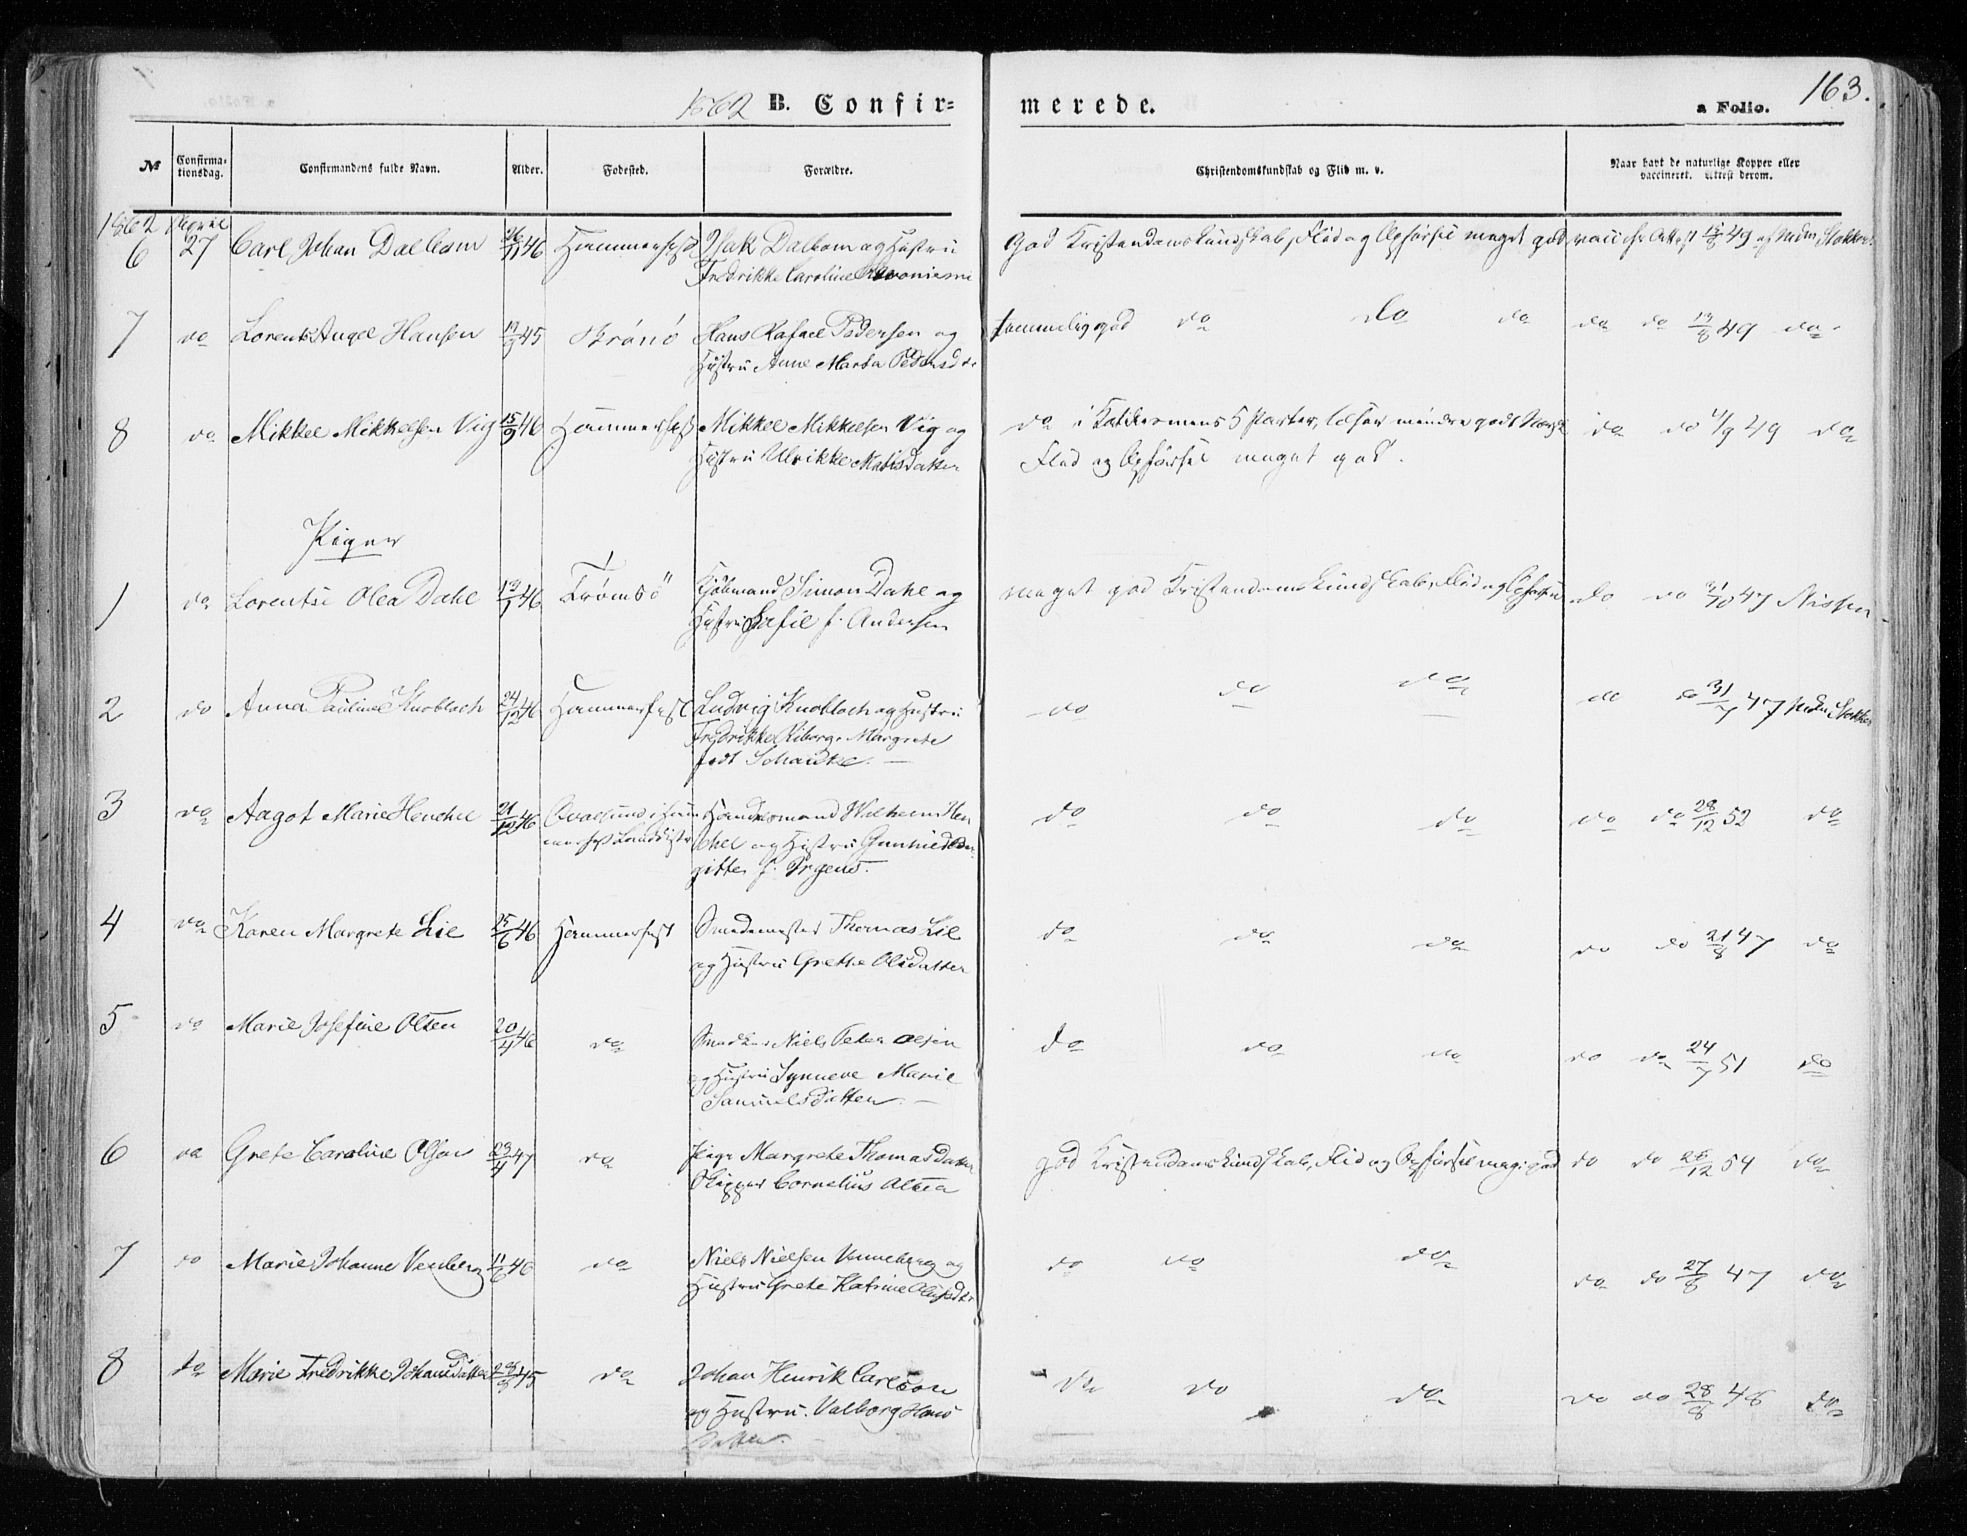 1862 B. Confir= merede. a Folio. 163.
№ Confirma-tionsdag. Confirmandens fulde Navn. Alder. Fødested. Forældre. Christendomskundskab og Flid m. v. Naar havt de naturlige Kopper eller vaccineret. Attest derom.
1862 April
6 27 Carl Johan Dalbom 26/11 46 Hammerfest Isak Dalbom og Hustru god Kristendomskundskab, Flid og Opførsel meget god vacc. ifr Attest 49
Fredrikke Caroline
7 do Lorents Angel Hansen 45 Hans Rafael Pedersen og temmelig god do do do do do 49 do
Hustru Anne Marta Pedersdtr
8 do Mikkel Mikkelsen Vig 15/9 46 Hammerfest Mikkel Mikkelsen Vig og do i Katekismens 5 Parter, læser mindre godt Norsk do do 49 do
Hustru Ulrikke Matisdatter Flid og Opførsel meget god.
Piger
1 do Lorentse Olea Dahl 46 Tromsö Kjøbmand Simon Dahl og meget god Kristendomskundskab, Flid og Opførsel do do 31/10 47 Nissen
Hustru Sofie f. Andersen
2 do Anna Pauline Knobloch 24/12 46 Hammerfest Ludvig Knobloch og Hustru do do do do do 31/7 47
Fredrikke Riborg Margrete
født
3 do Aagot Marie Henchel 21/12 46 Qvalsund i Ham Handelsmand Wilhelm Hen do do do do do 28/12 52 do
merfest Landdistr chel og Hustru
gitte f. Irgens.
4 do Karen Margrete Lie 25/6 46 Hammerfest Smedemester Thomas Lie do do do do do 21/8 47 do
og Hustru Grethe Olsdatter
5 do Marie Josefine Olsen 20/4 46 do Niels Peter Olsen do do do do do 24/7 51 do
og Hustru Synneve Marie
Samuelsdatter.
6 do Grete Caroline Olsen 23/4 47 do Pige Margrete Thomasdatter god Kristendomskundskab, Flid og Opførsel meg. god do do 26/12 54 do
Cornelius Olsen
7 do Marie Johanne Venberg 11/6 46 do Niels Nielsen Venneberg og do do do do do 27/8 47 do
Hustru Grete Katrine
8 do Marie Fredrikke Johansdatter 45 do Johan Henrik Carlson do do do do do 28/8 48 do
og Hustru Valborg Hans
datter.